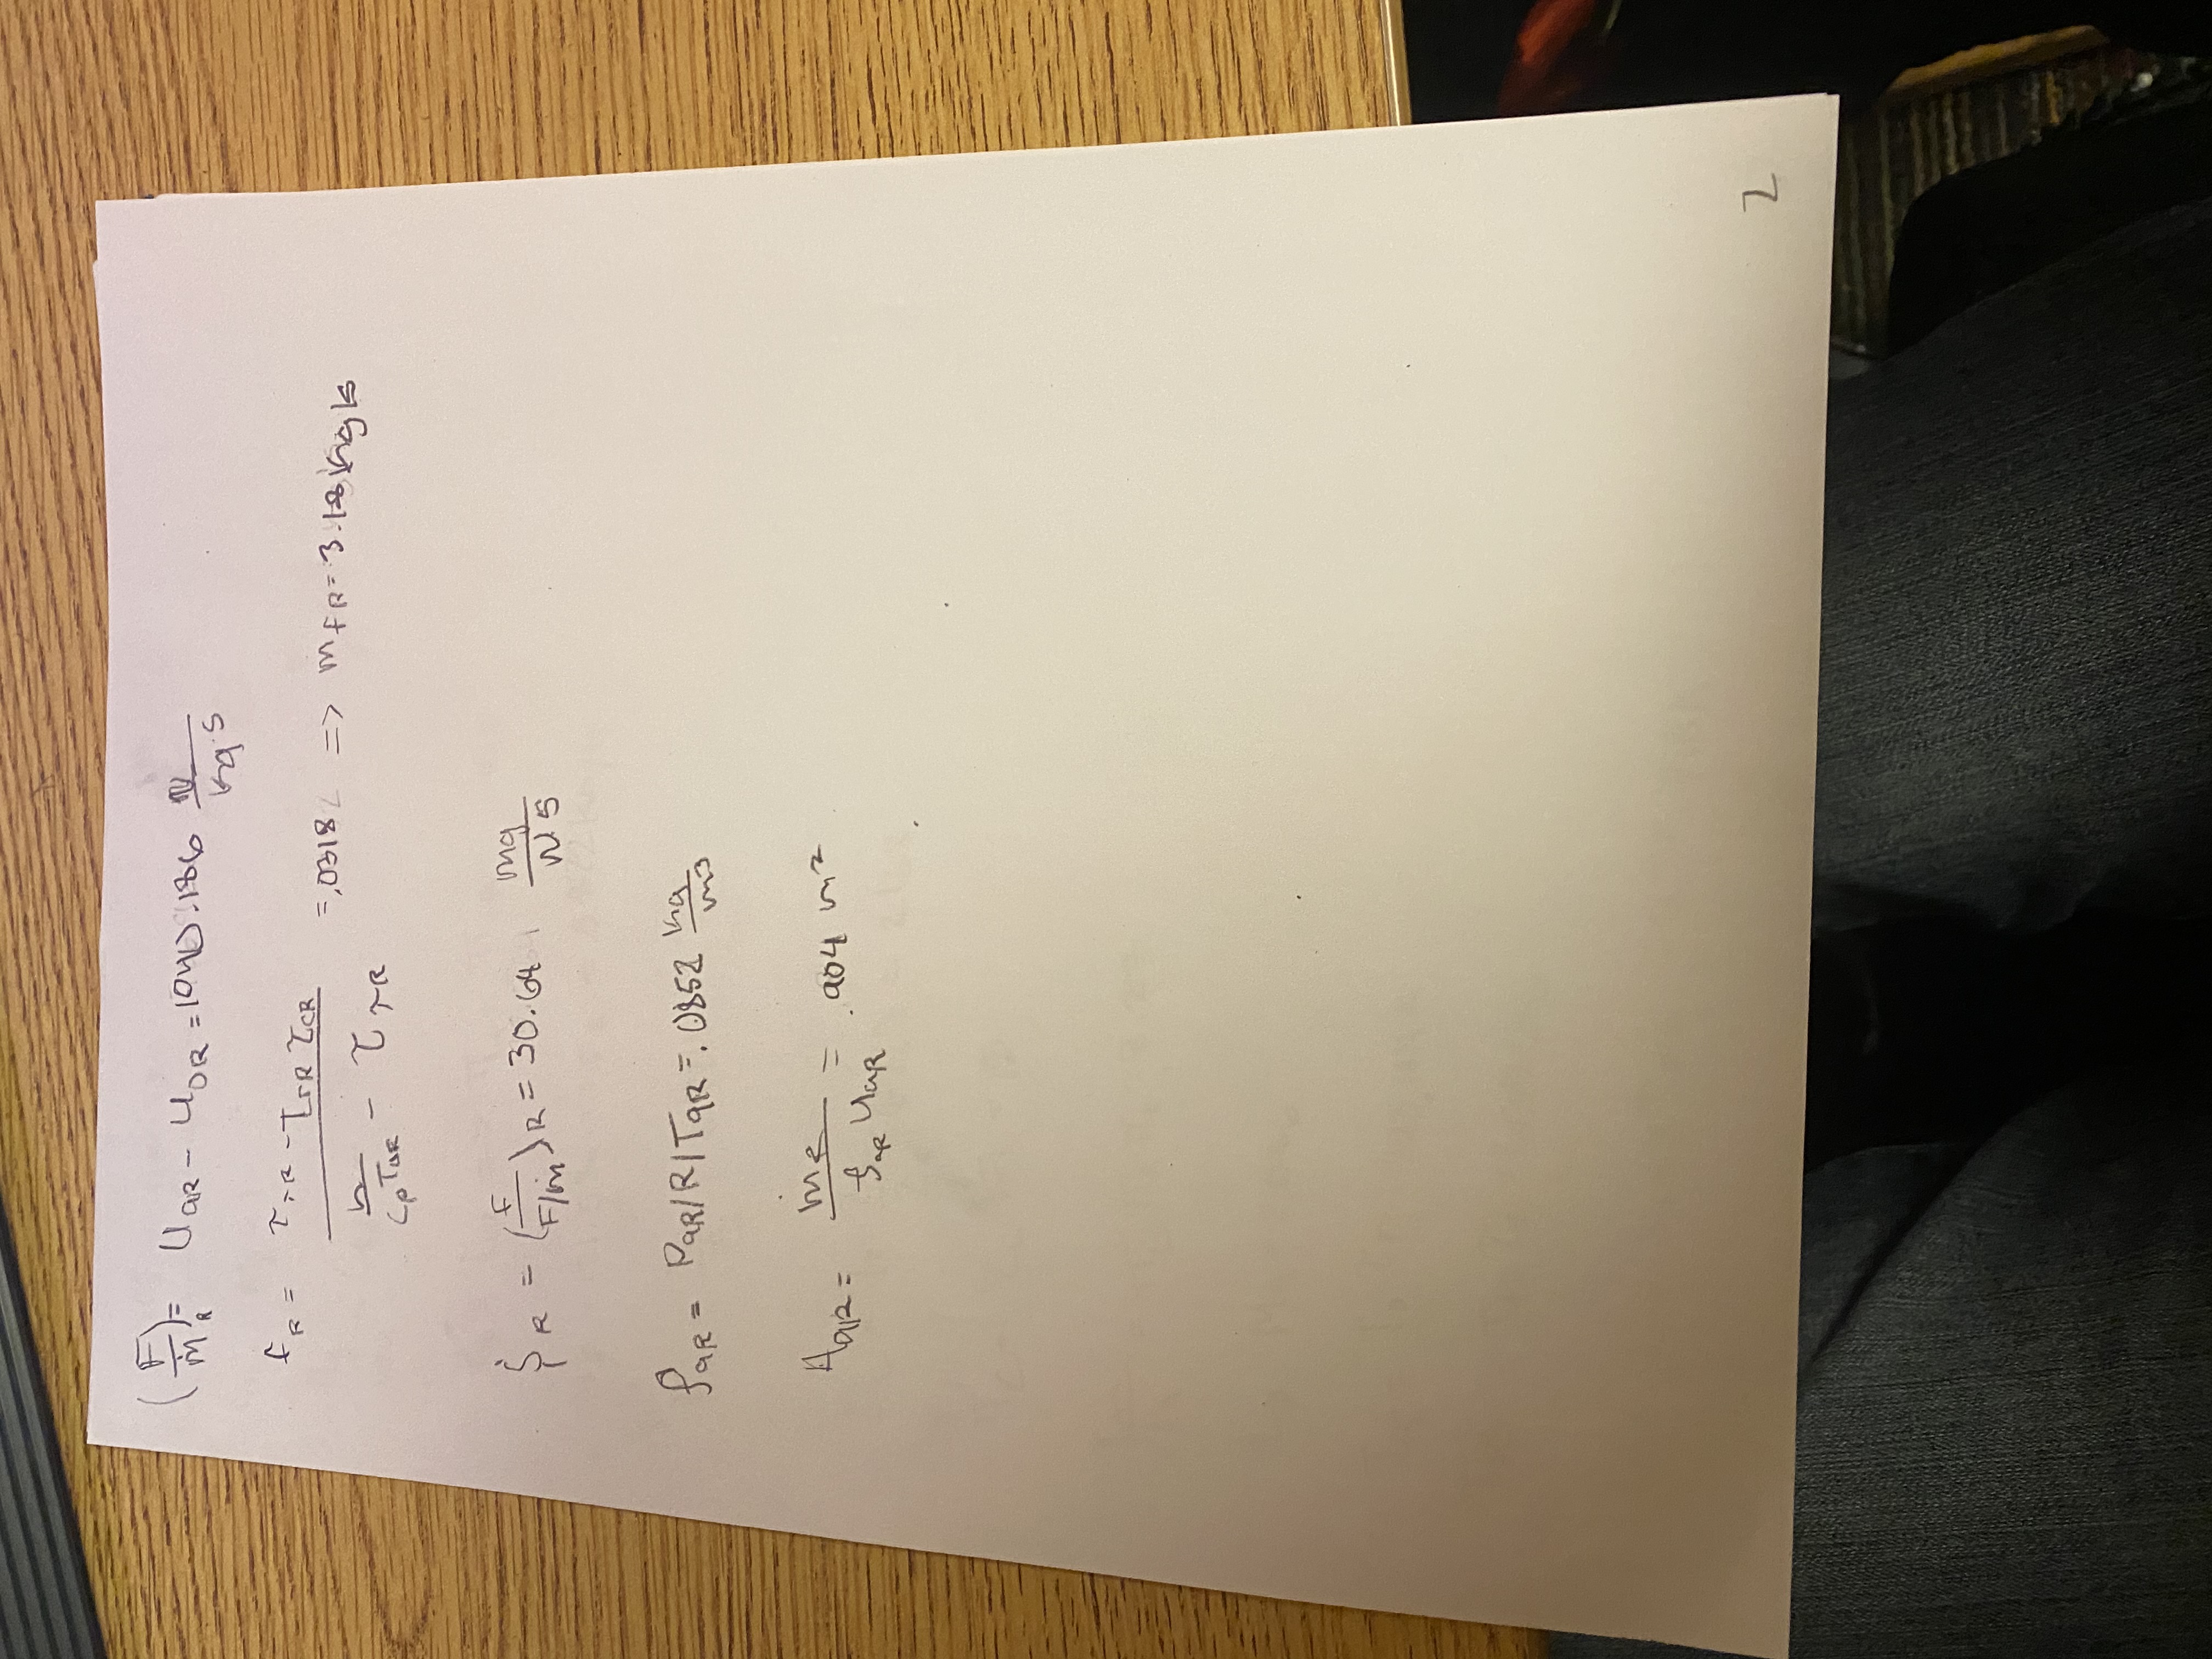 (F/ṁ)R = U9R - U0R = 1040.186 N/kg·s
fR = (τλR - τrR τCR) / (h/(CpT0R) - τλR) = .0318 => mfR = 3.18 kg/s
SR = (f/(F/ṁ))R = 30.64 mg/N·s
ρ9R = P9R/R/T9R = .0852 kg/m³
A9R = ṁR/(ρ9R U9R) = .904 m²
2